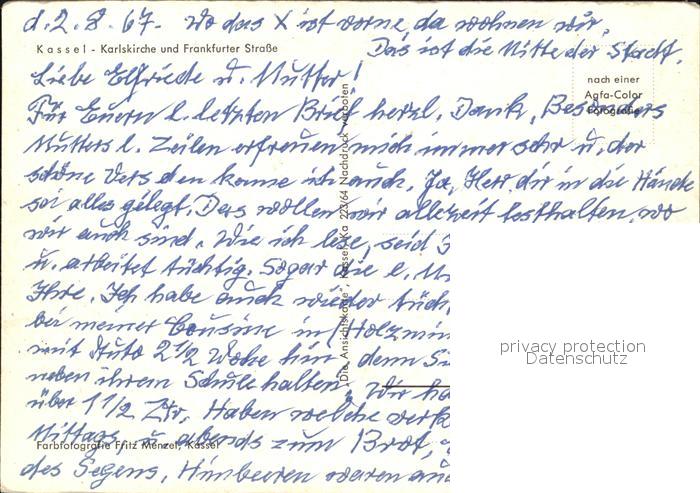 d. 2. 8. 67. Wo das X ist vorne, da wohnen wir.
Kassel - Karlskirche und Frankfurter Straße
Das ist die Mitte der Stadt.
nach einer
Agfa-Color
Fotografie
Liebe Elfriede u. Mutter!
Für Euern l. letzten Brief herzl. Dank, Besonders
Mutters l. Zeilen erfreuen mich immer sehr u. der
schöne Vers den kenne ich auch. Ja, Herr dir in die Hände
sei alles gelegt. Das wollen wir allezeit festhalten, wo
wir auch sind. Wie ich lese, seid
u. arbeitet tüchtig. Sogar die l. M
Ihre. Ich habe auch wieder tüch
bei meiner Cousine in Holzmin
mit Auto 2 1/2 Woche hin, denn Si
neben ihrem Schule halten. Wir ha
über 1 1/2 Ztr. Haben welche verk
Mittags u. abends zum Brot,
des Segens, Himbeeren waren auc
"Die Ansichtskarte", Kassel, Ka 223/64 Nachdruck verboten
Farbfotografie Fritz Menzel, Kassel
privacy protection
Datenschutz